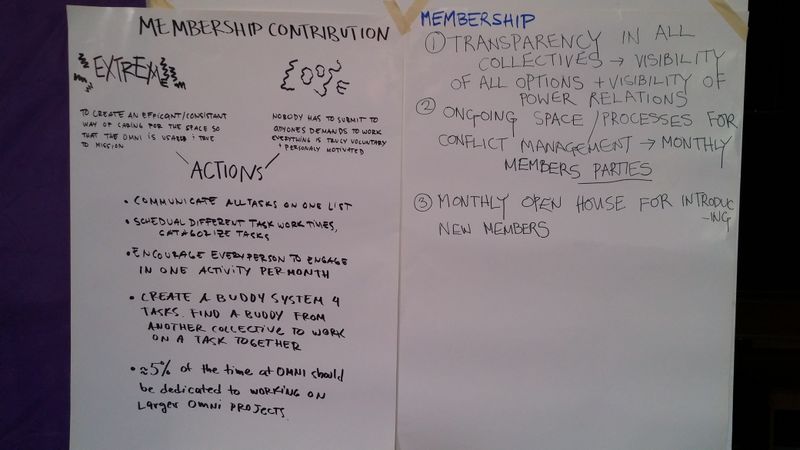 MEMBERSHIP CONTRIBUTION
EXTREME
LOOSE
TO CREATE AN EFFICANT/CONSISTANT
WAY OF CARING FOR THE SPACE SO
THAT THE OMNI IS USABLE + TRUE
TO MISSION
NOBODY HAS TO SUBMIT TO
ANYONES DEMANDS TO WORK
EVERYTHING IS TRULY VOLUNTARY
+ PERSONALY MOTIVATED
ACTIONS
• COMMUNICATE ALL TASKS ON ONE LIST
• SCHEDUAL DIFFERENT TASK WORK TIMES,
CATAGORIZE TASKS
• ENCOURAGE EVERY PERSON TO ENGAGE
IN ONE ACTIVITY PER MONTH
• CREATE A BUDDY SYSTEM 4
TASKS. FIND A BUDDY FROM
ANOTHER COLLECTIVE TO WORK
ON A TASK TOGETHER
• ≈5% of the time at OMNI should
be dedicated to working on
Larger Omni PROJECTS.
MEMBERSHIP
① TRANSPARENCY IN ALL
COLLECTIVES → VISIBILITY
OF ALL OPTIONS + VISIBILITY OF
POWER RELATIONS
② ONGOING SPACE/PROCESSES FOR
CONFLICT MANAGEMENT → MONTHLY
MEMBERS PARTIES
③ MONTHLY OPEN HOUSE FOR INTRODUC
-ING
NEW MEMBERS